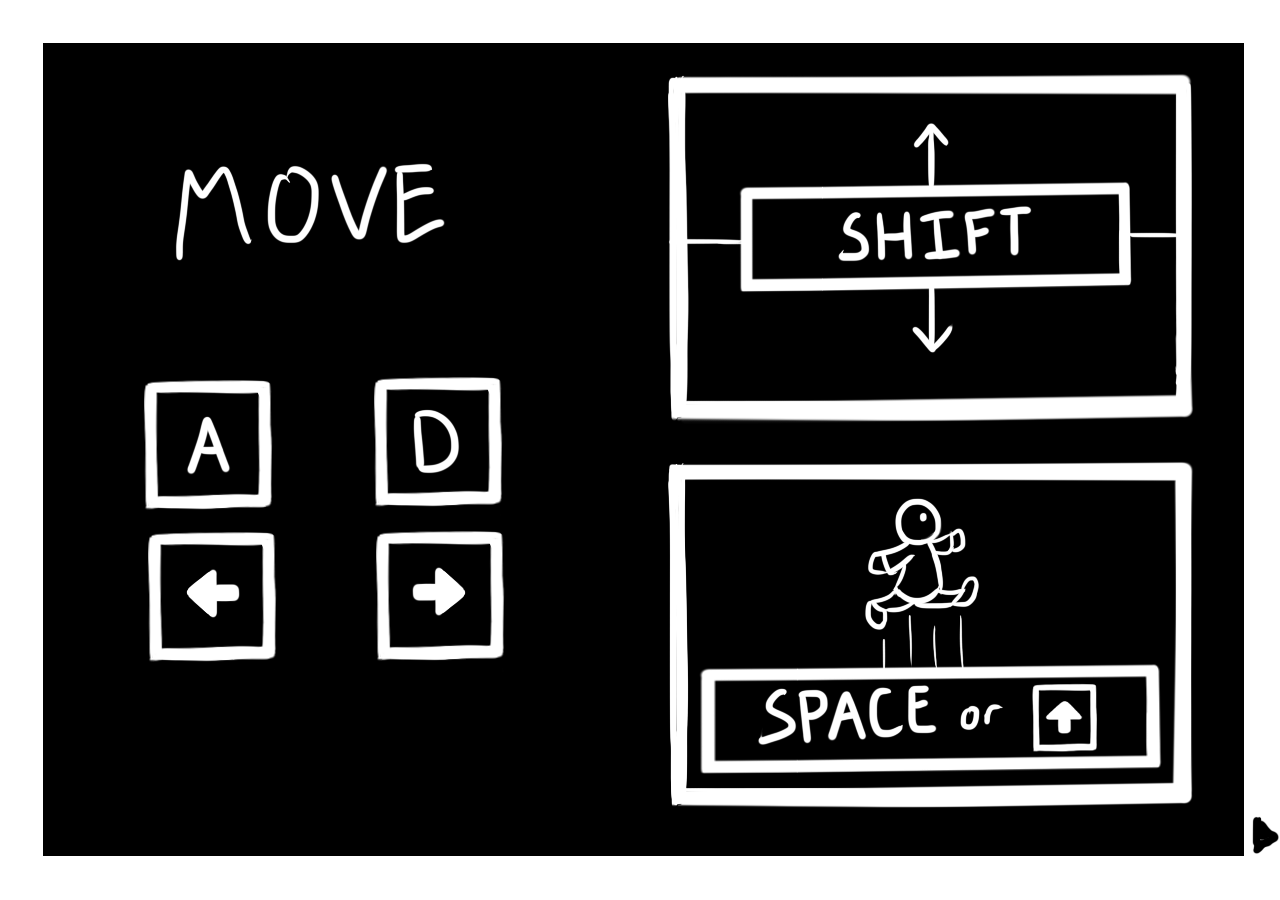 MOVE
A D
SHIFT
SPACE or